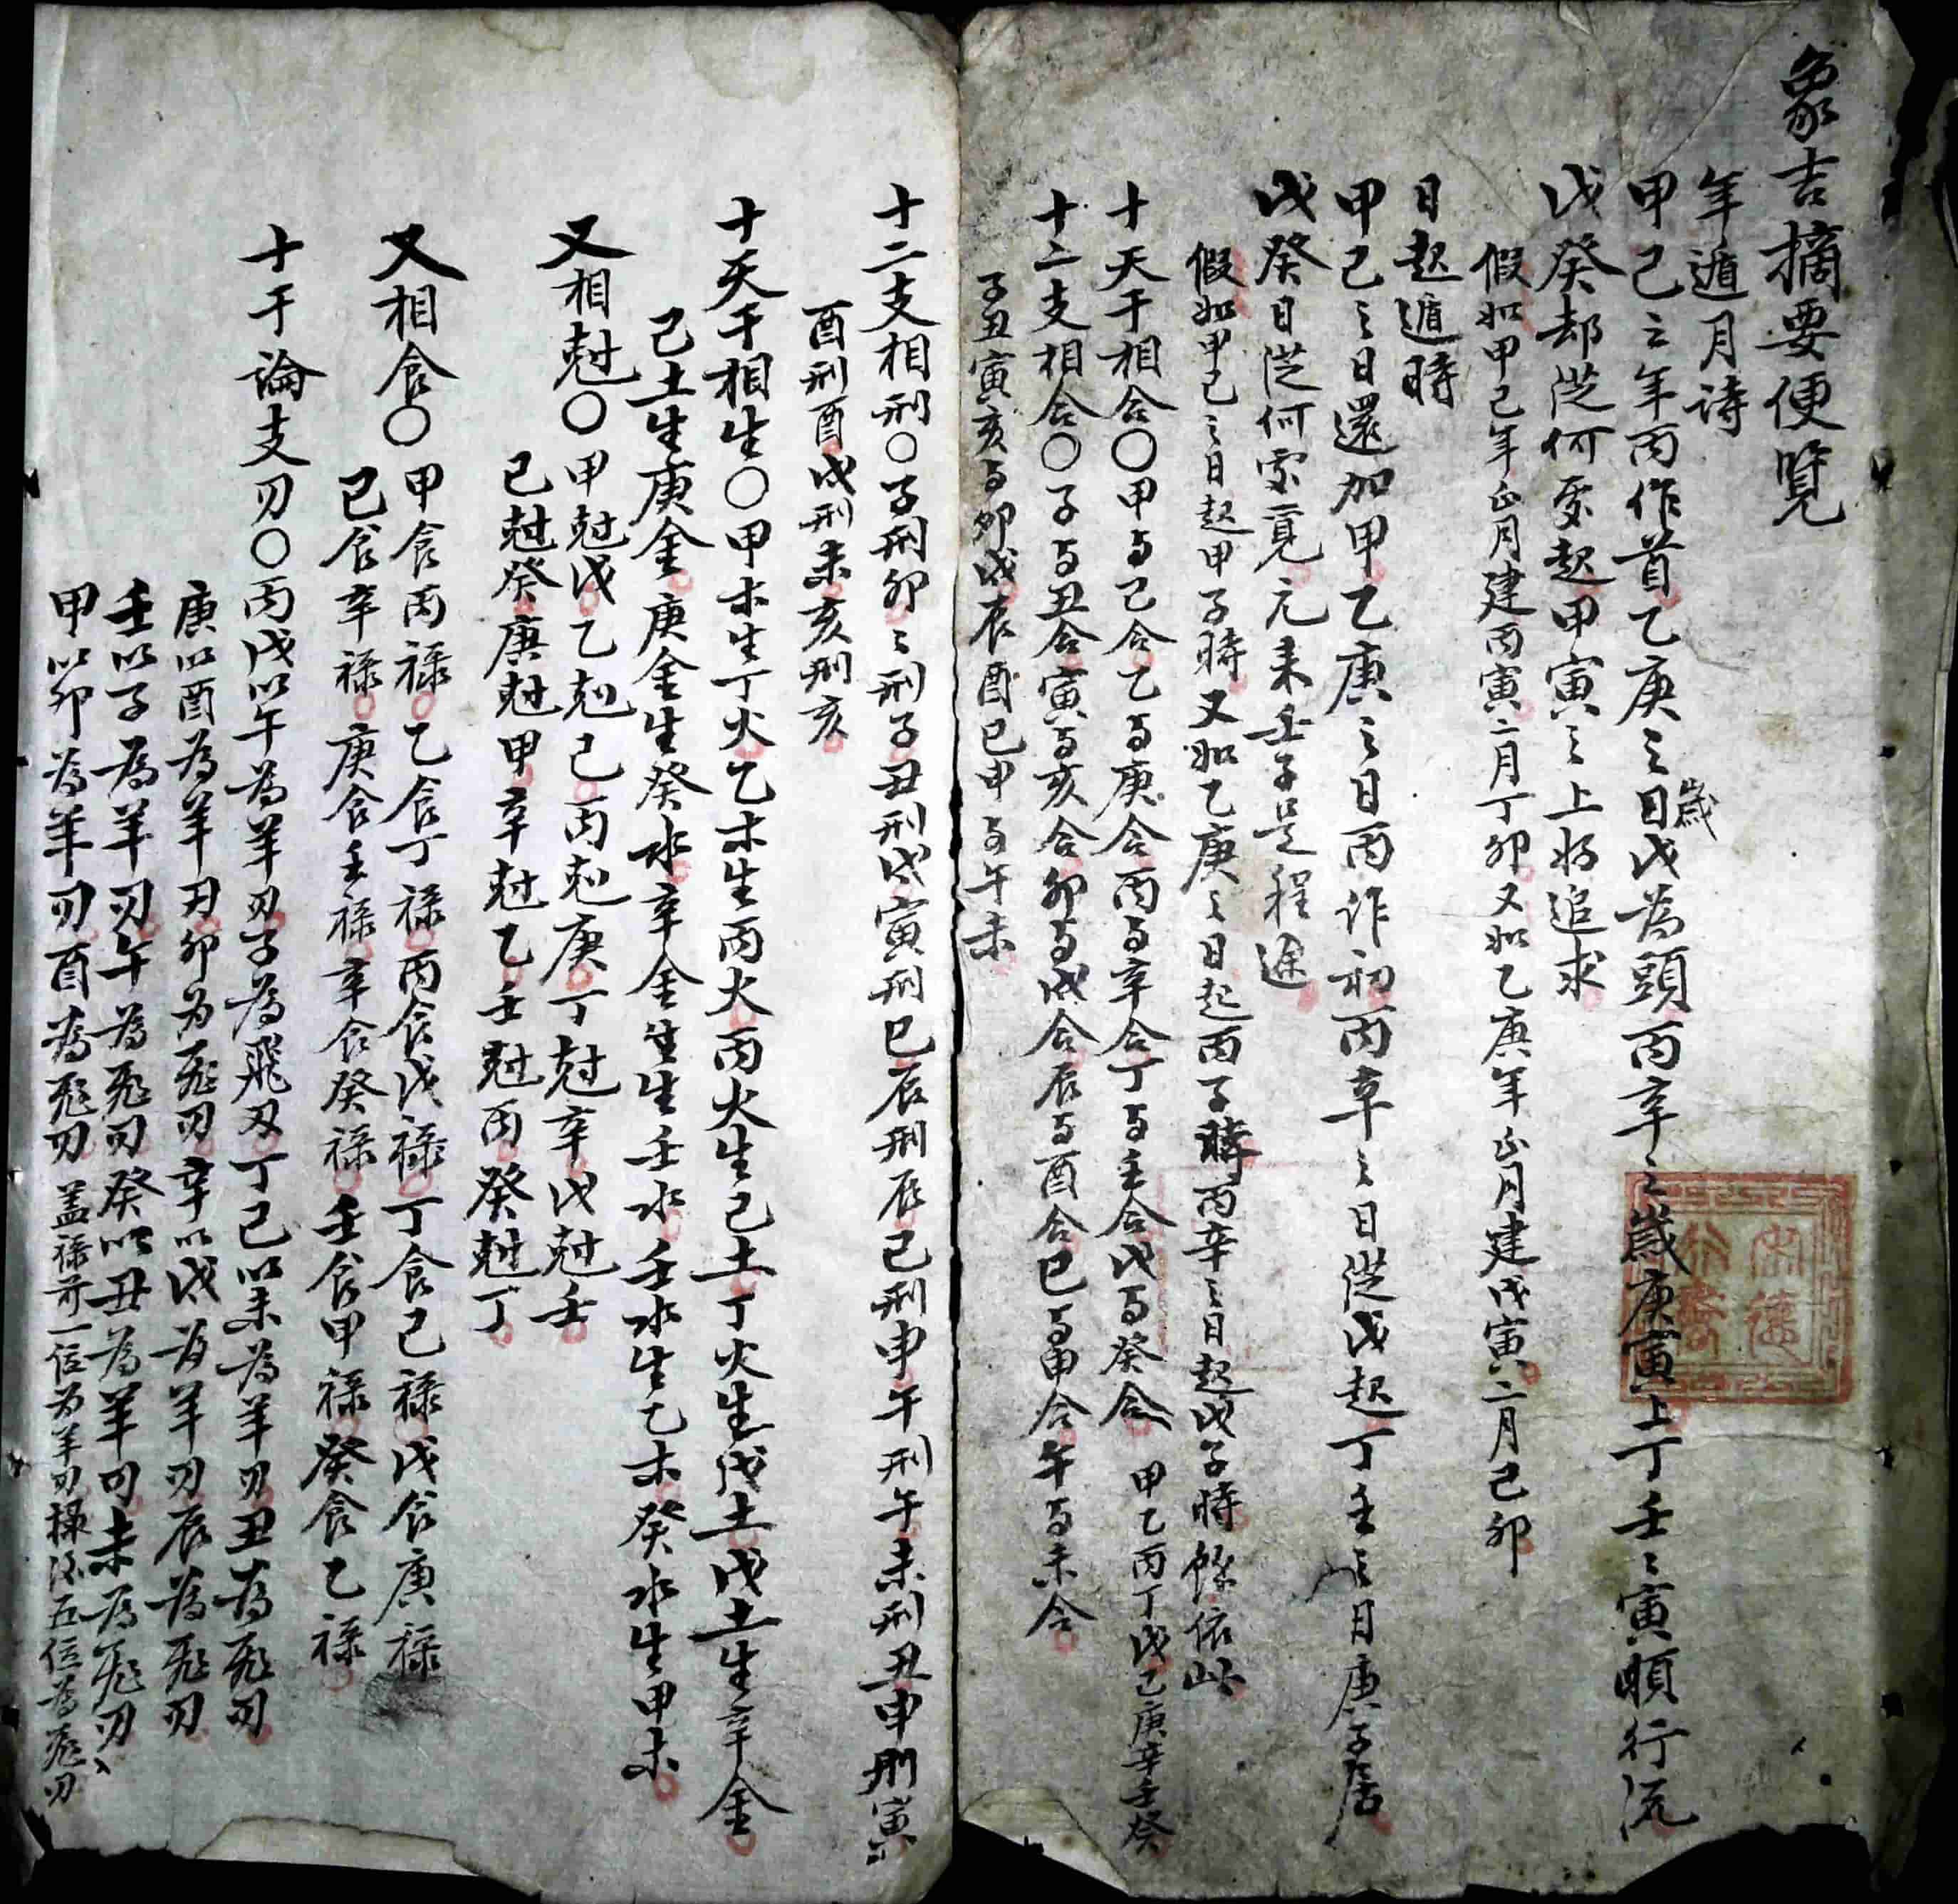 象吉摘要便覽
年遁月詩
甲己之年丙作首乙庚之日歲戊為頭丙辛之歲庚寅上丁壬之寅順行流
戊癸却從何處起甲寅之上好追求
假如甲己年正月建丙寅二月丁卯又如乙庚年正月建戊寅二月己卯
日起遁時
甲己之日還加甲乙庚之日丙作初丙辛之日從戊起丁壬之日庚子居
戊癸日從何家覓元來壬子是程途
假如甲己之日起甲子時又如乙庚之日起丙子時丙辛之日起戊子時餘依此
十天干相合〇甲与己合乙与庚合丙与辛合丁与壬合戊与癸合 甲乙丙丁戊己庚辛壬癸
十二支相合〇子与丑合寅与亥合卯与戌合辰与酉合巳与申合午与未合
子丑寅亥与卯戌辰酉巳申与午未
十二支相刑〇子刑卯卯刑子丑刑戌寅刑巳辰刑辰巳刑申午刑午未刑丑申刑寅
酉刑酉戌刑未亥刑亥
十天干相生〇甲木生丁火乙木生丙火丙火生己土丁火生戊土戊土生辛金
己土生庚金庚金生癸水辛金生壬水壬水生乙木癸水生甲木
又相尅〇甲尅戊乙尅己丙尅庚丁尅辛戊尅壬
己尅癸庚尅甲辛尅乙壬尅丙癸尅丁
又相食〇甲食丙祿乙食丁祿丙食戊祿丁食己祿戊食庚祿
己食辛祿庚食壬祿辛食癸祿壬食甲祿癸食乙祿
十干論支刃〇丙戊以午為羊刃子為飛刃丁己以未為羊刃丑為飛刃
庚以酉為羊刃卯为飛刃辛以戌為羊刃辰為飛刃
壬以子為羊刃午為飛刃癸以丑為羊刃未為飛刃
甲以卯為羊刃酉為飛刃 盖祿前一位为羊刃五位為飛刃